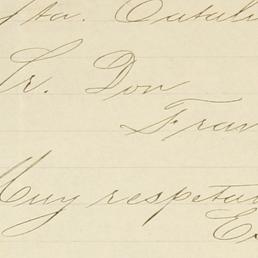 Sta. Catali
Sr. Don
Fran
Muy respeta
E